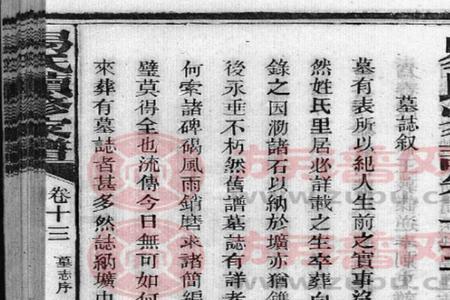 墓誌叙
墓有表所以紀人生前之實事
然姓氏里居必詳載之生卒葬向
錄之因泐諸石以納於壙亦猶
後永垂不朽然舊譜墓誌有詳
何索諸碑碣風雨銷磨求諸簡編
璧莫得全也流傳今日無可如何
來葬有墓誌者甚多然誌納壙中
氏續修家譜
卷十三
墓志序